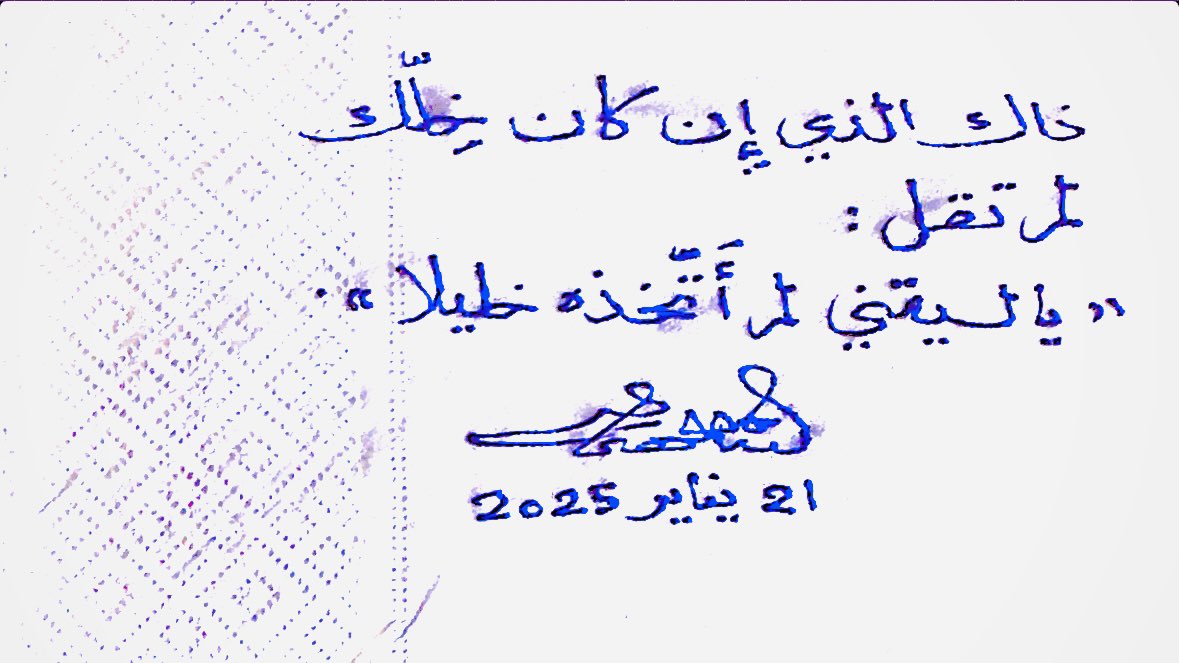 ذاك الذي إن كان خِلّك
لم تقل :
« يا ليتني لم أَتّخذه خليلا ».
21 يناير 2025